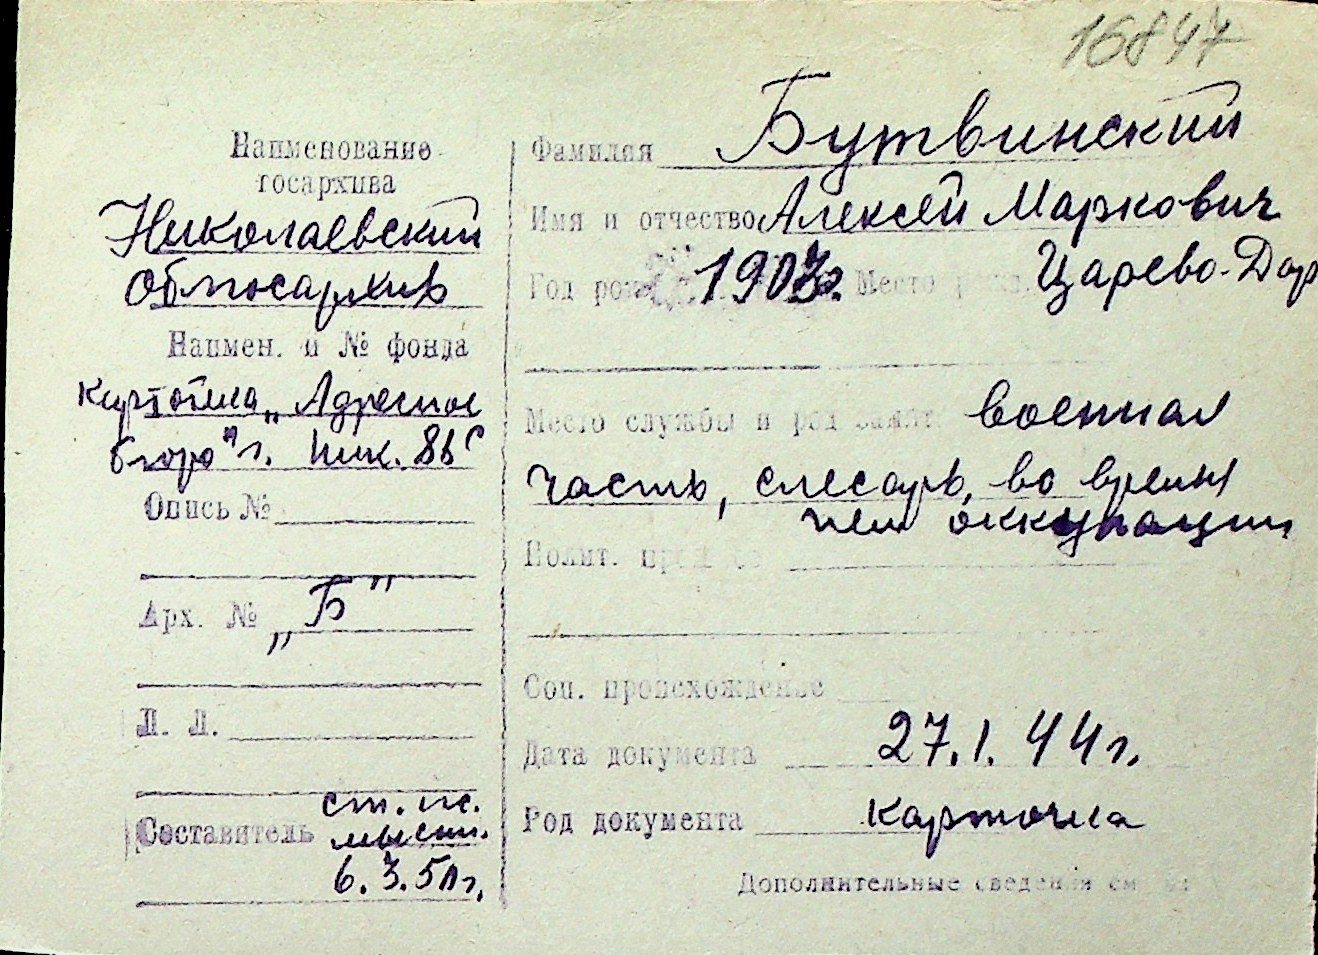 16847
Наименование
госархива
Николаевский
Облгосархив
Наимен. и № фонда
картотека „Адресное
бюро" г. Ник.
Опись №
Арх. № „Б"
Л. Л.
Составитель ст.
6.3.50г.
Фамилия Бутвинский
Имя и отчество Алексей Маркович
Год рож 1903г. Место рожд. Царево-Дар
Место службы и род занят. военная
часть, слесарь, во время
нем оккупации
Полит.
Соц. происхождение
Дата документа 27.1.44г.
Род документа карточка
Дополнительные сведения см